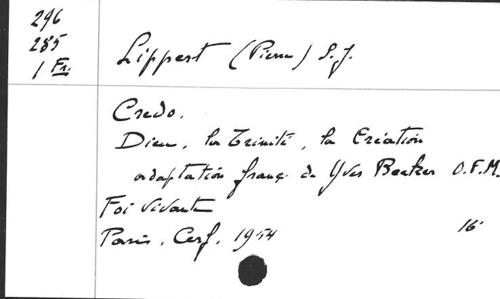 296
285
1 Fr.
Lippert (Pierre) S.J.
Credo.
Dieu, la Trinité, la Création
adaptation franç. de Yves Becker O.F.M.
Foi vivante
Paris, Cerf, 1954 16